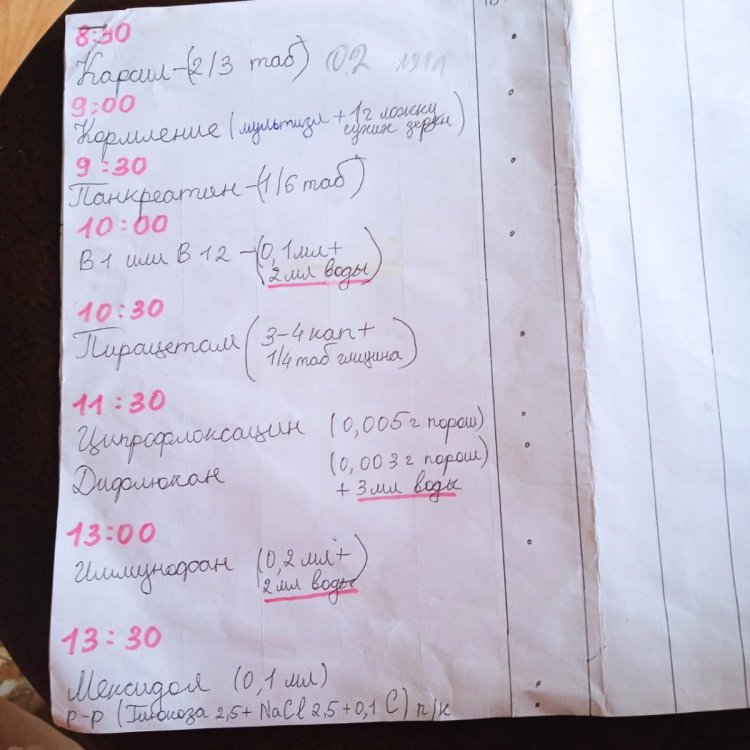 8:30
Карсил-(2/3 таб) 02
9:00
Кормление (мультизл + 1г ложку
сухих зерен)
9:30
Панкреатин-(1/6 таб)
10:00
В1 или В12-(0,1мл+
2мл воды)
10:30
Пирацетам (3-4кап+
1/4 таб глицина)
11:30
Ципрофлоксацин (0,005г порош)
Дифлюкан (0,003г порош)
+ 3мл воды
13:00
Иммунофан (0,2мл+
2мл воды)
13:30
Мексидол (0,1мл)
р-р (Глюкоза 2,5+ NaCl 2,5+0,1 С) п/к